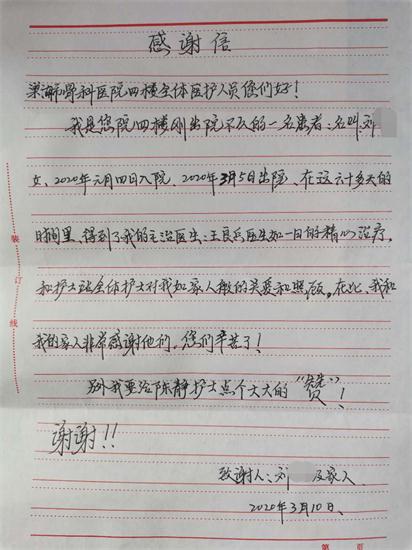 感谢信
骨科医院四楼全体医护人员您们好！
我是您院四楼刚出院不久的一名患者：名叫：刘
女、2020年元月四日入院、2020年3月5日出院、在这六十多天的
时间里、得到了我的主治医生：王良兵医生如一日的精心治疗。
和护士站全体护士对我如家人般的关爱和照顾。在此、我和
我的家人非常感谢他们，您们辛苦了！
另外我要给陈静护士点个大大的“赞”！
谢谢!!
致谢人：刘 及家人
2020年3月10日、
装订线
第 页